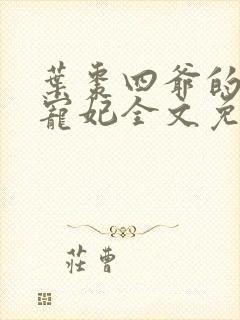 葉棗四爺的
寵妃全文免
莊曹